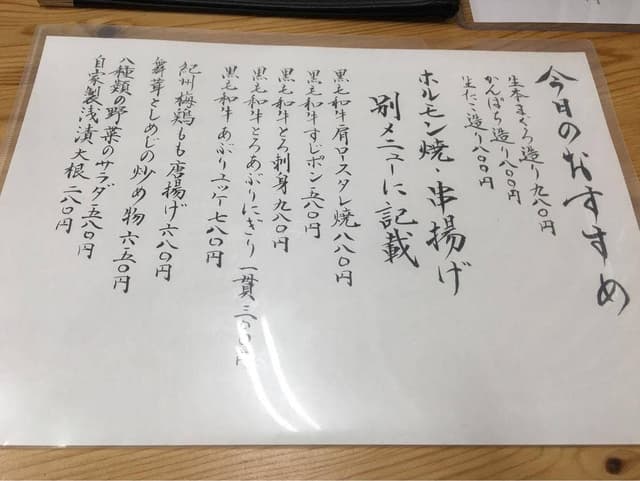 今日のおすすめ
生本まぐろ造り九八〇円
かんぱち造り八〇〇円
生たこ造り八〇〇円
ホルモン焼・串揚げ
別メニューに記載
黒毛和牛肩ロースタレ焼八八〇円
黒毛和牛すじポン五八〇円
黒毛和牛とろ刺身九八〇円
黒毛和牛とろあぶりにぎり一貫三〇〇円
黒毛和牛あぶりユッケ七八〇円
紀州梅鶏もも唐揚げ六八〇円
舞茸としめじの炒め物六五〇円
八種類の野菜のサラダ五八〇円
自家製浅漬大根二八〇円
円